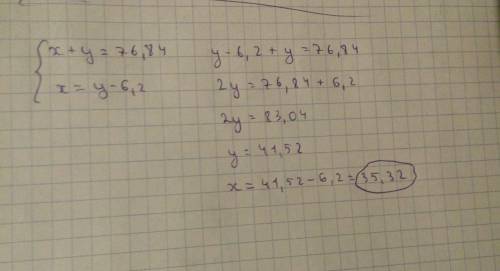 x + y = 76,84
x = y - 6,2
y - 6,2 + y = 76,84
2y = 76,84 + 6,2
2y = 83,04
y = 41,52
x = 41,52 - 6,2 = 35,32